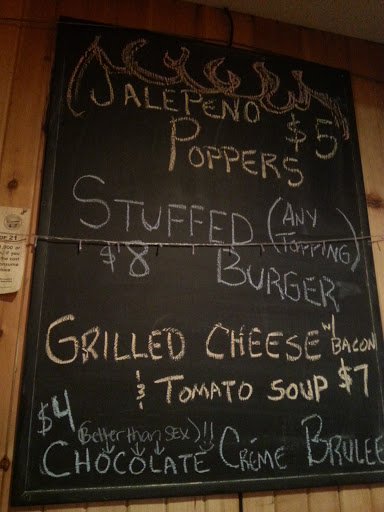 JALEPENO
POPPERS $5
STUFFED (ANY TOPPING)
$8 BURGER
GRILLED CHEESE W/ BACON
& TOMATO SOUP $7
$4 (Better than SEX)!!
CHOCOLATE CRÉME BRULEE